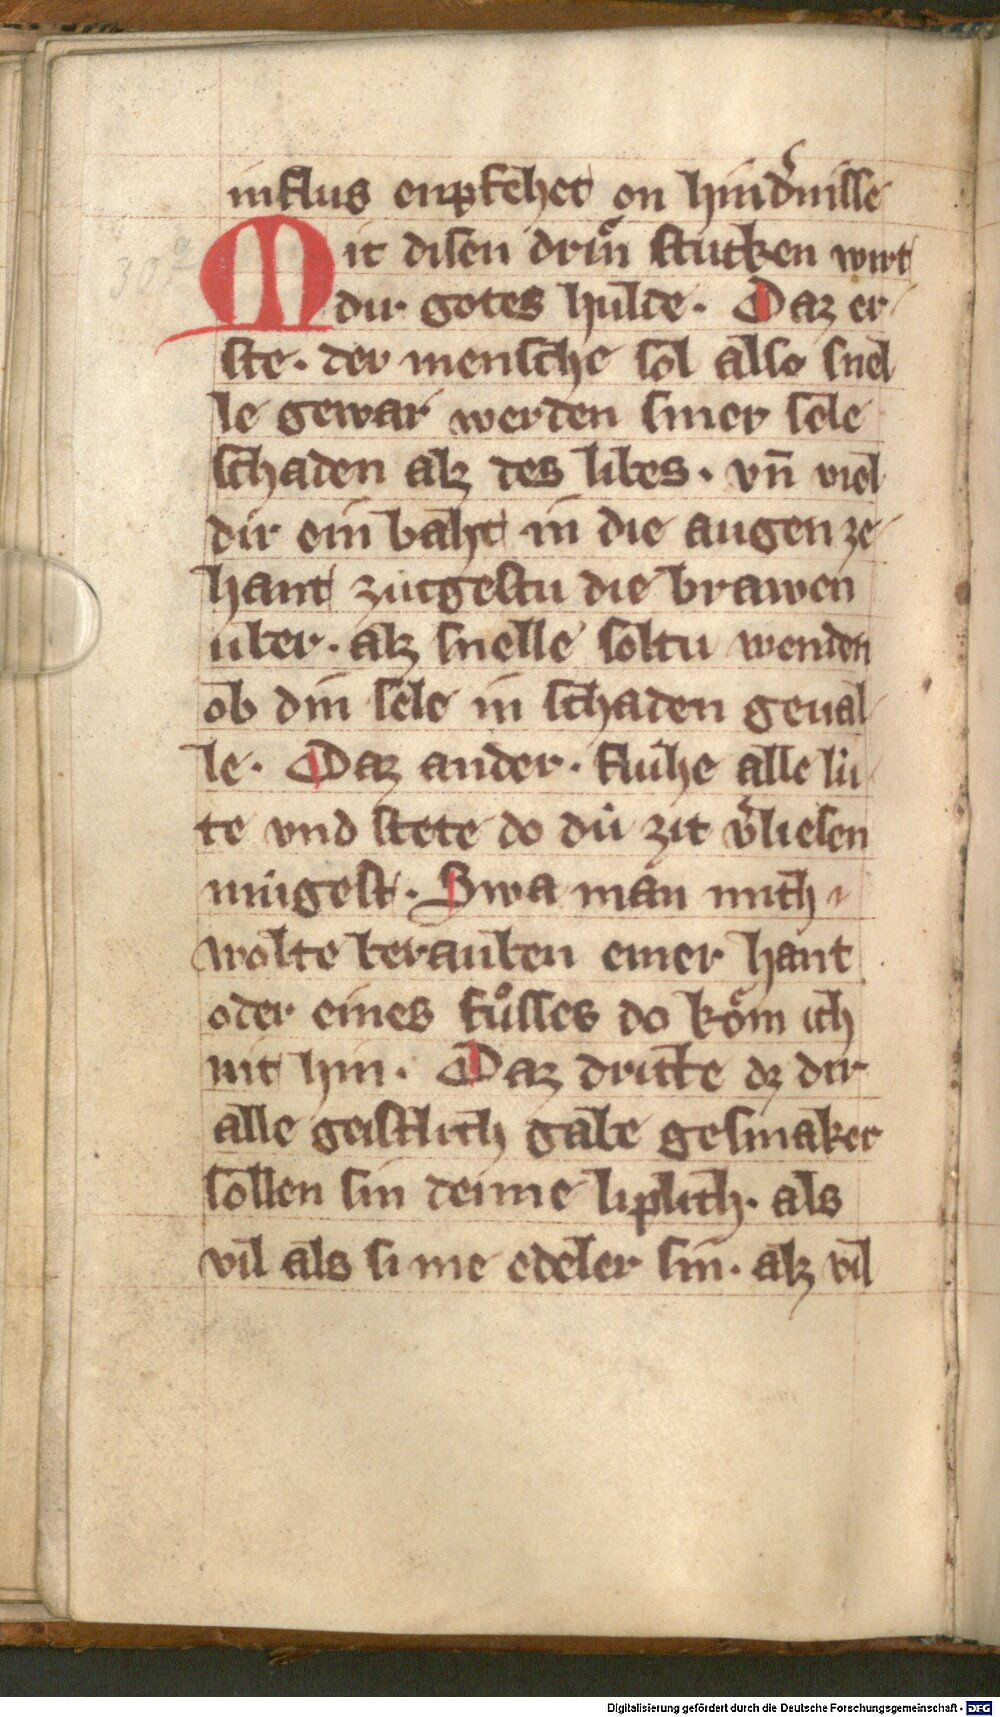 influs enpfehet on hindˀnisse
Mit disen drin stucken wirt
dir gotes hulde. Daz er
ste. der mensche sol also snel
le gewar werden siner sele
schaden alz des libes. vn̄ viel
dir ein baht in die augen ze
hant zugestu die brawen
uber. alz snelle soltu wenden
ob din sele in schaden geual
le. Daz ander. fluhe alle lu
te vnd stete do du zit vˀliesen
mugest. Swa man mich
wolte berauben einer hant
oder eines fuͦsses do koͤm ich
nit hin. Daz dritte dz dir
alle geistlich gabe gesmaker
sollen sin denne liplich. als
vil als si me edeler sin. alz vil
Digitalisierung gefördert durch die Deutsche Forschungsgemeinschaft - DFG